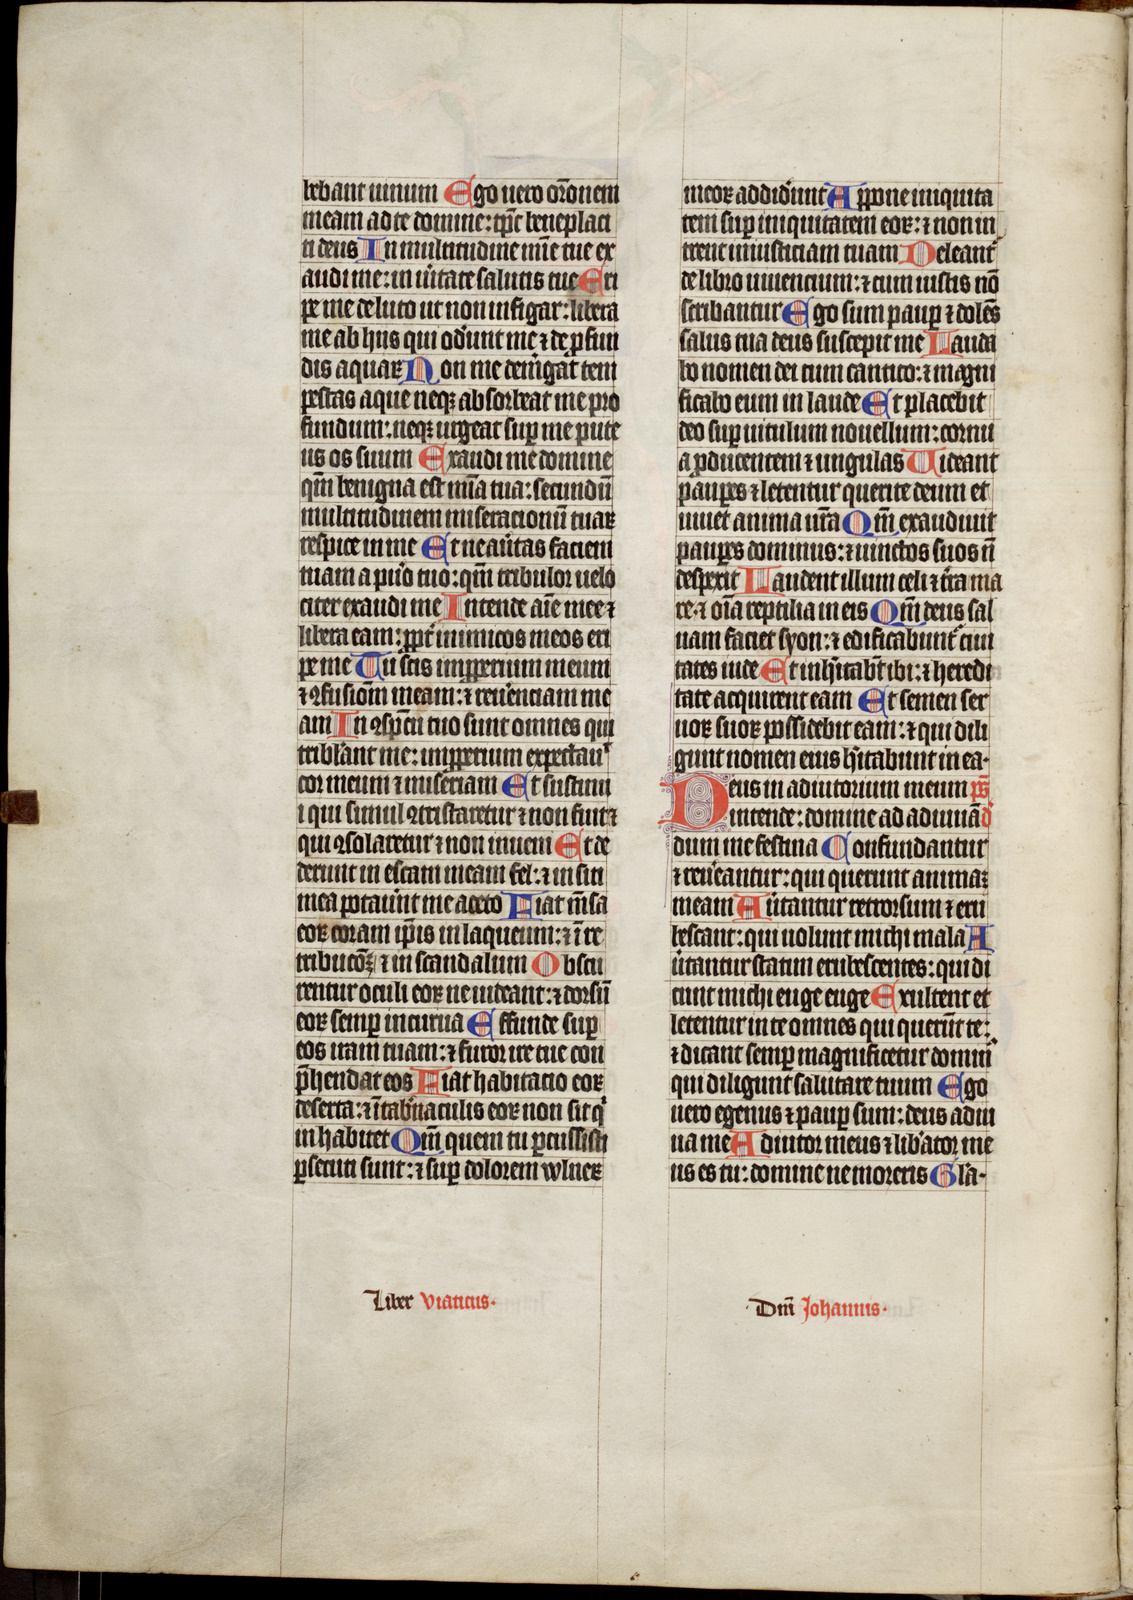 bebant uinum Ego uero or̄onem
meam ad te domine: tp̄c beneplaci
ti deus In multitudine mīe tue ex
audi me: in u̾itate salutis tue Eri
pe me de luto ut non infigar: libera
me ab hiis qui oder̄unt me ⁊ de ꝓfun
dis aquaꝝ Non me dem̾gat tem
pestas aque neqꝫ absorbeat me pro
fundum: neqꝫ urgeat suꝑ me pute
us os suum Exaudi me domine
qm̄ benigna est mīa tua: secundū
multitudinem miseracionū tuaꝝ
respice in me Et ne au̾tas faciem
tuam a pu̾o tuo: qm̄ tribulor uelo
citer exaudi me Intende aīe mee ⁊
libera eam: ꝓpt̾ inimicos meos eri
pe me Tu scis imꝓperium meum
⁊ ꝯfusiōm meam: ⁊ reu̾enciam me
am In ꝯsp̄cu tuo sunt omnes qui
tribl̄ant me: imꝓperium expectau̾
cor meum ⁊ miseriam Et sustinu
i qui simul ꝯtristaretur ⁊ non fuit ⁊
qui ꝯsolaretur ⁊ non inueni Et de
derunt in escam meam fel: ⁊ in siti
mea potau̾nt me aceto Fiat m̄sa
eoꝝ coram ip̄is in laqueum: ⁊ ī re
tribucōꝫ ⁊ in scandalum Obscu
rentur oculi eoꝝ ne uideant: ⁊ dorsū
eoꝝ semꝑ incurua Effunde suꝑ
eos iram tuam: ⁊ furor ire tue con
p̄hendat eos Fiat habitacio eoꝝ
deserta: ⁊ ī tab̾naculis eoꝝ non sit q̾
inhabitet Qm̄ quem tu ꝑcussisti
ꝑsecuti sunt: ⁊ suꝑ dolorem wlneꝝ
meoꝝ addid̾unt Appone iniquita
tem suꝑ iniquitatem eoꝝ: ⁊ non in
trent in iusticiam tuam Deleant̾
de libro uiuencium: ⁊ cum iustis nō
scribantur Ego sum pauꝑ ⁊ dolēs
salus tua deus suscepit me Lauda
bo nomen dei cum cantico: ⁊ magni
ficabo eum in laude Et placebit
deo suꝑ uitulum nouellum: cornu
a ꝓducentem ⁊ ungulas Uideant
pauꝑes ⁊ letentur querite deum et
uiuet anima ur̄a Qm̄ exaudiuit
pauꝑes dominus: ⁊ uinctos suos n̄
despexit Laudent illum celi ⁊ t̾ra ma
re: ⁊ oīa reptilia in eis Qm̄ deus sal
uam faciet syon: ⁊ edificabunt̾ ciui
tates iude Et inh̾itab̄t ibi: ⁊ heredi
tate acquirent eam Et semen ser
uoꝝ suoꝝ possidebit eam: ⁊ qui dili
gunt nomen eius h̾itabunt in ea.
Deus in adiutorium meum ps̄
intende: domine ad adiuuā d̾
dum me festina Confundantur
⁊ reu̾eantur: qui querunt animaꝫ
meam Au̾tantur retrorsum ⁊ eru
bescant: qui uolunt michi mala A
u̾tantur statim erubescentes: qui di
cunt michi euge euge Exultent et
letentur in te omnes qui querūt te:
⁊ dicant semꝑ magnificetur domin̾
qui diligunt salutare tuum Ego
uero egenus ⁊ pauꝑ sum: deus adiu
ua me Adiutor meus ⁊ lib̾ator me
us es tu: domine ne moreris Gl̄a.
Liber Viaticus.
Dn̄i Johannis.